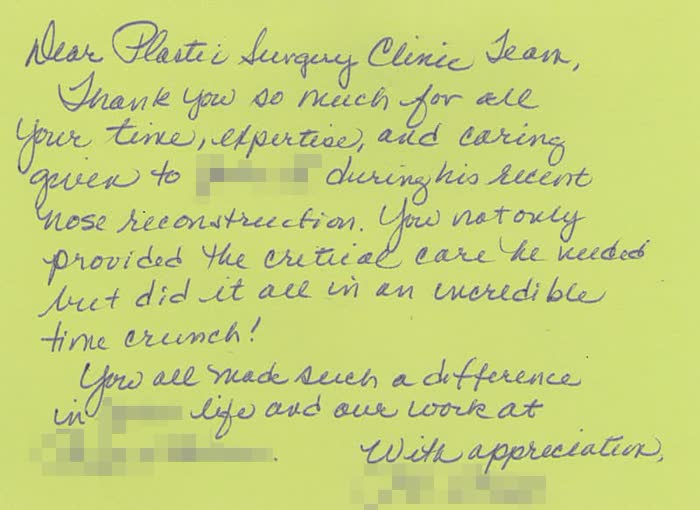 Dear Plastic Surgery Clinic Team,
Thank you so much for all
your time, expertise, and caring
given to during his recent
nose reconstruction. You not only
provided the critical care he needed
but did it all in an incredible
time crunch!
You all made such a difference
in life and our work at
With appreciation,